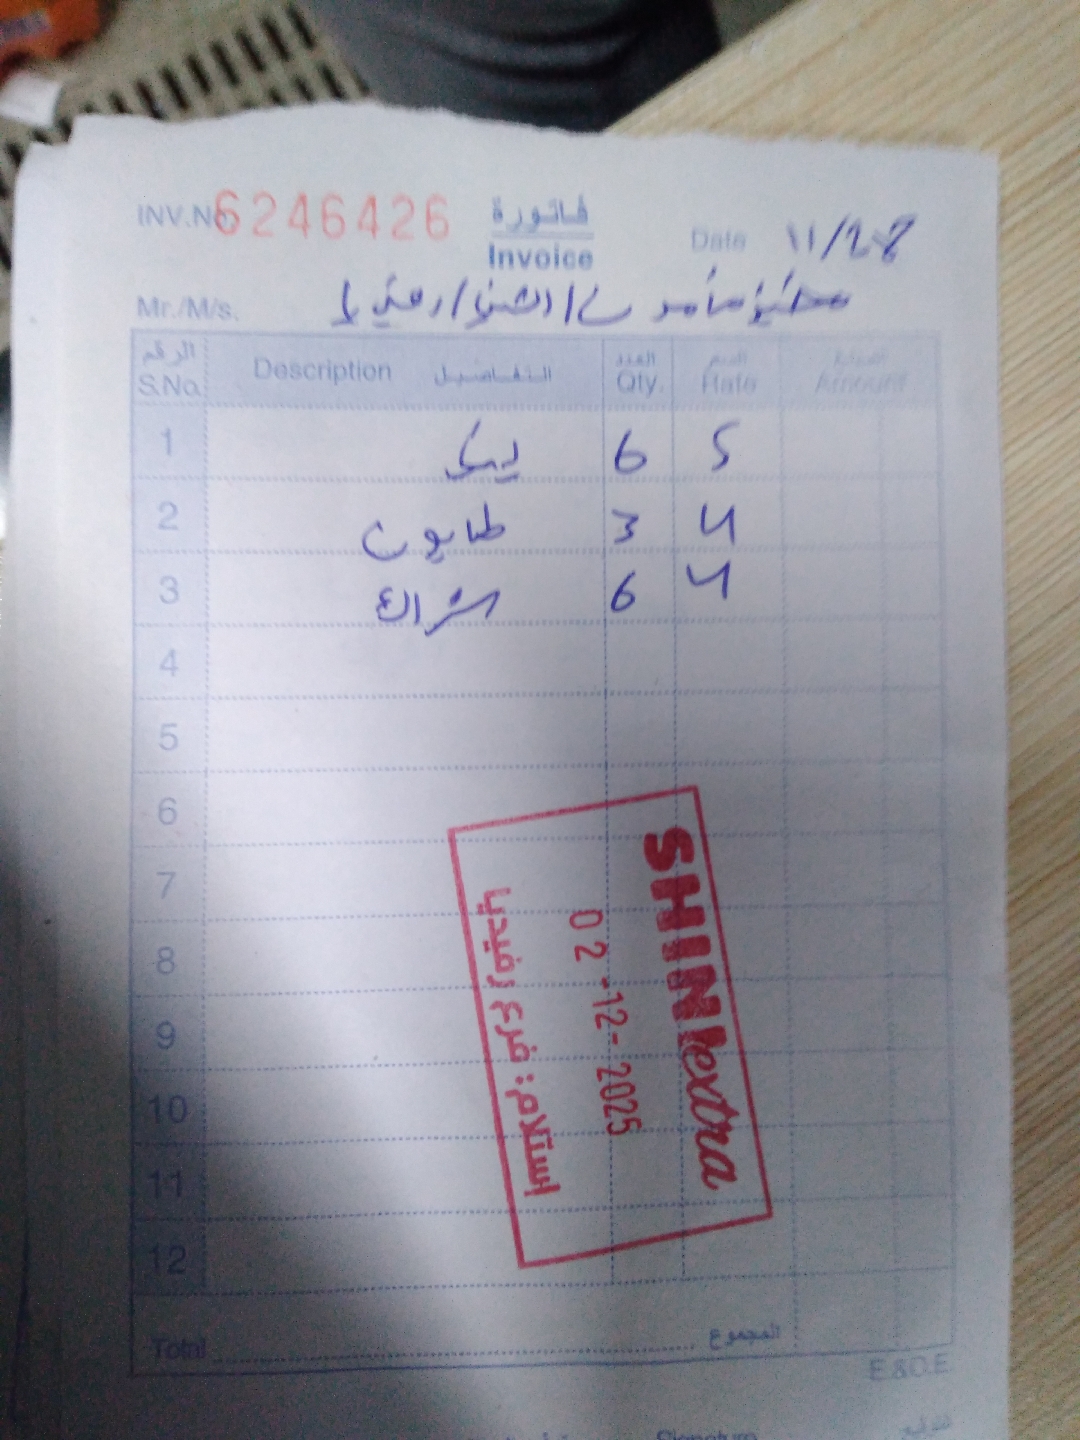 INV.No 6246426
فاتورة
Invoice
Date 11/28
Mr./M/s.
الرقم S.No. Description التفاصيل العدد Qty. السعر Rate المبلغ Amount
1 6 5
2 طابون 3 4
3 شراك 6 4
4
5
6
7
8
9
10
11
12
SHINI extra
02-12-2025
إستلام: فرع رفيديا
Total المجموع
E.&O.E
Signature